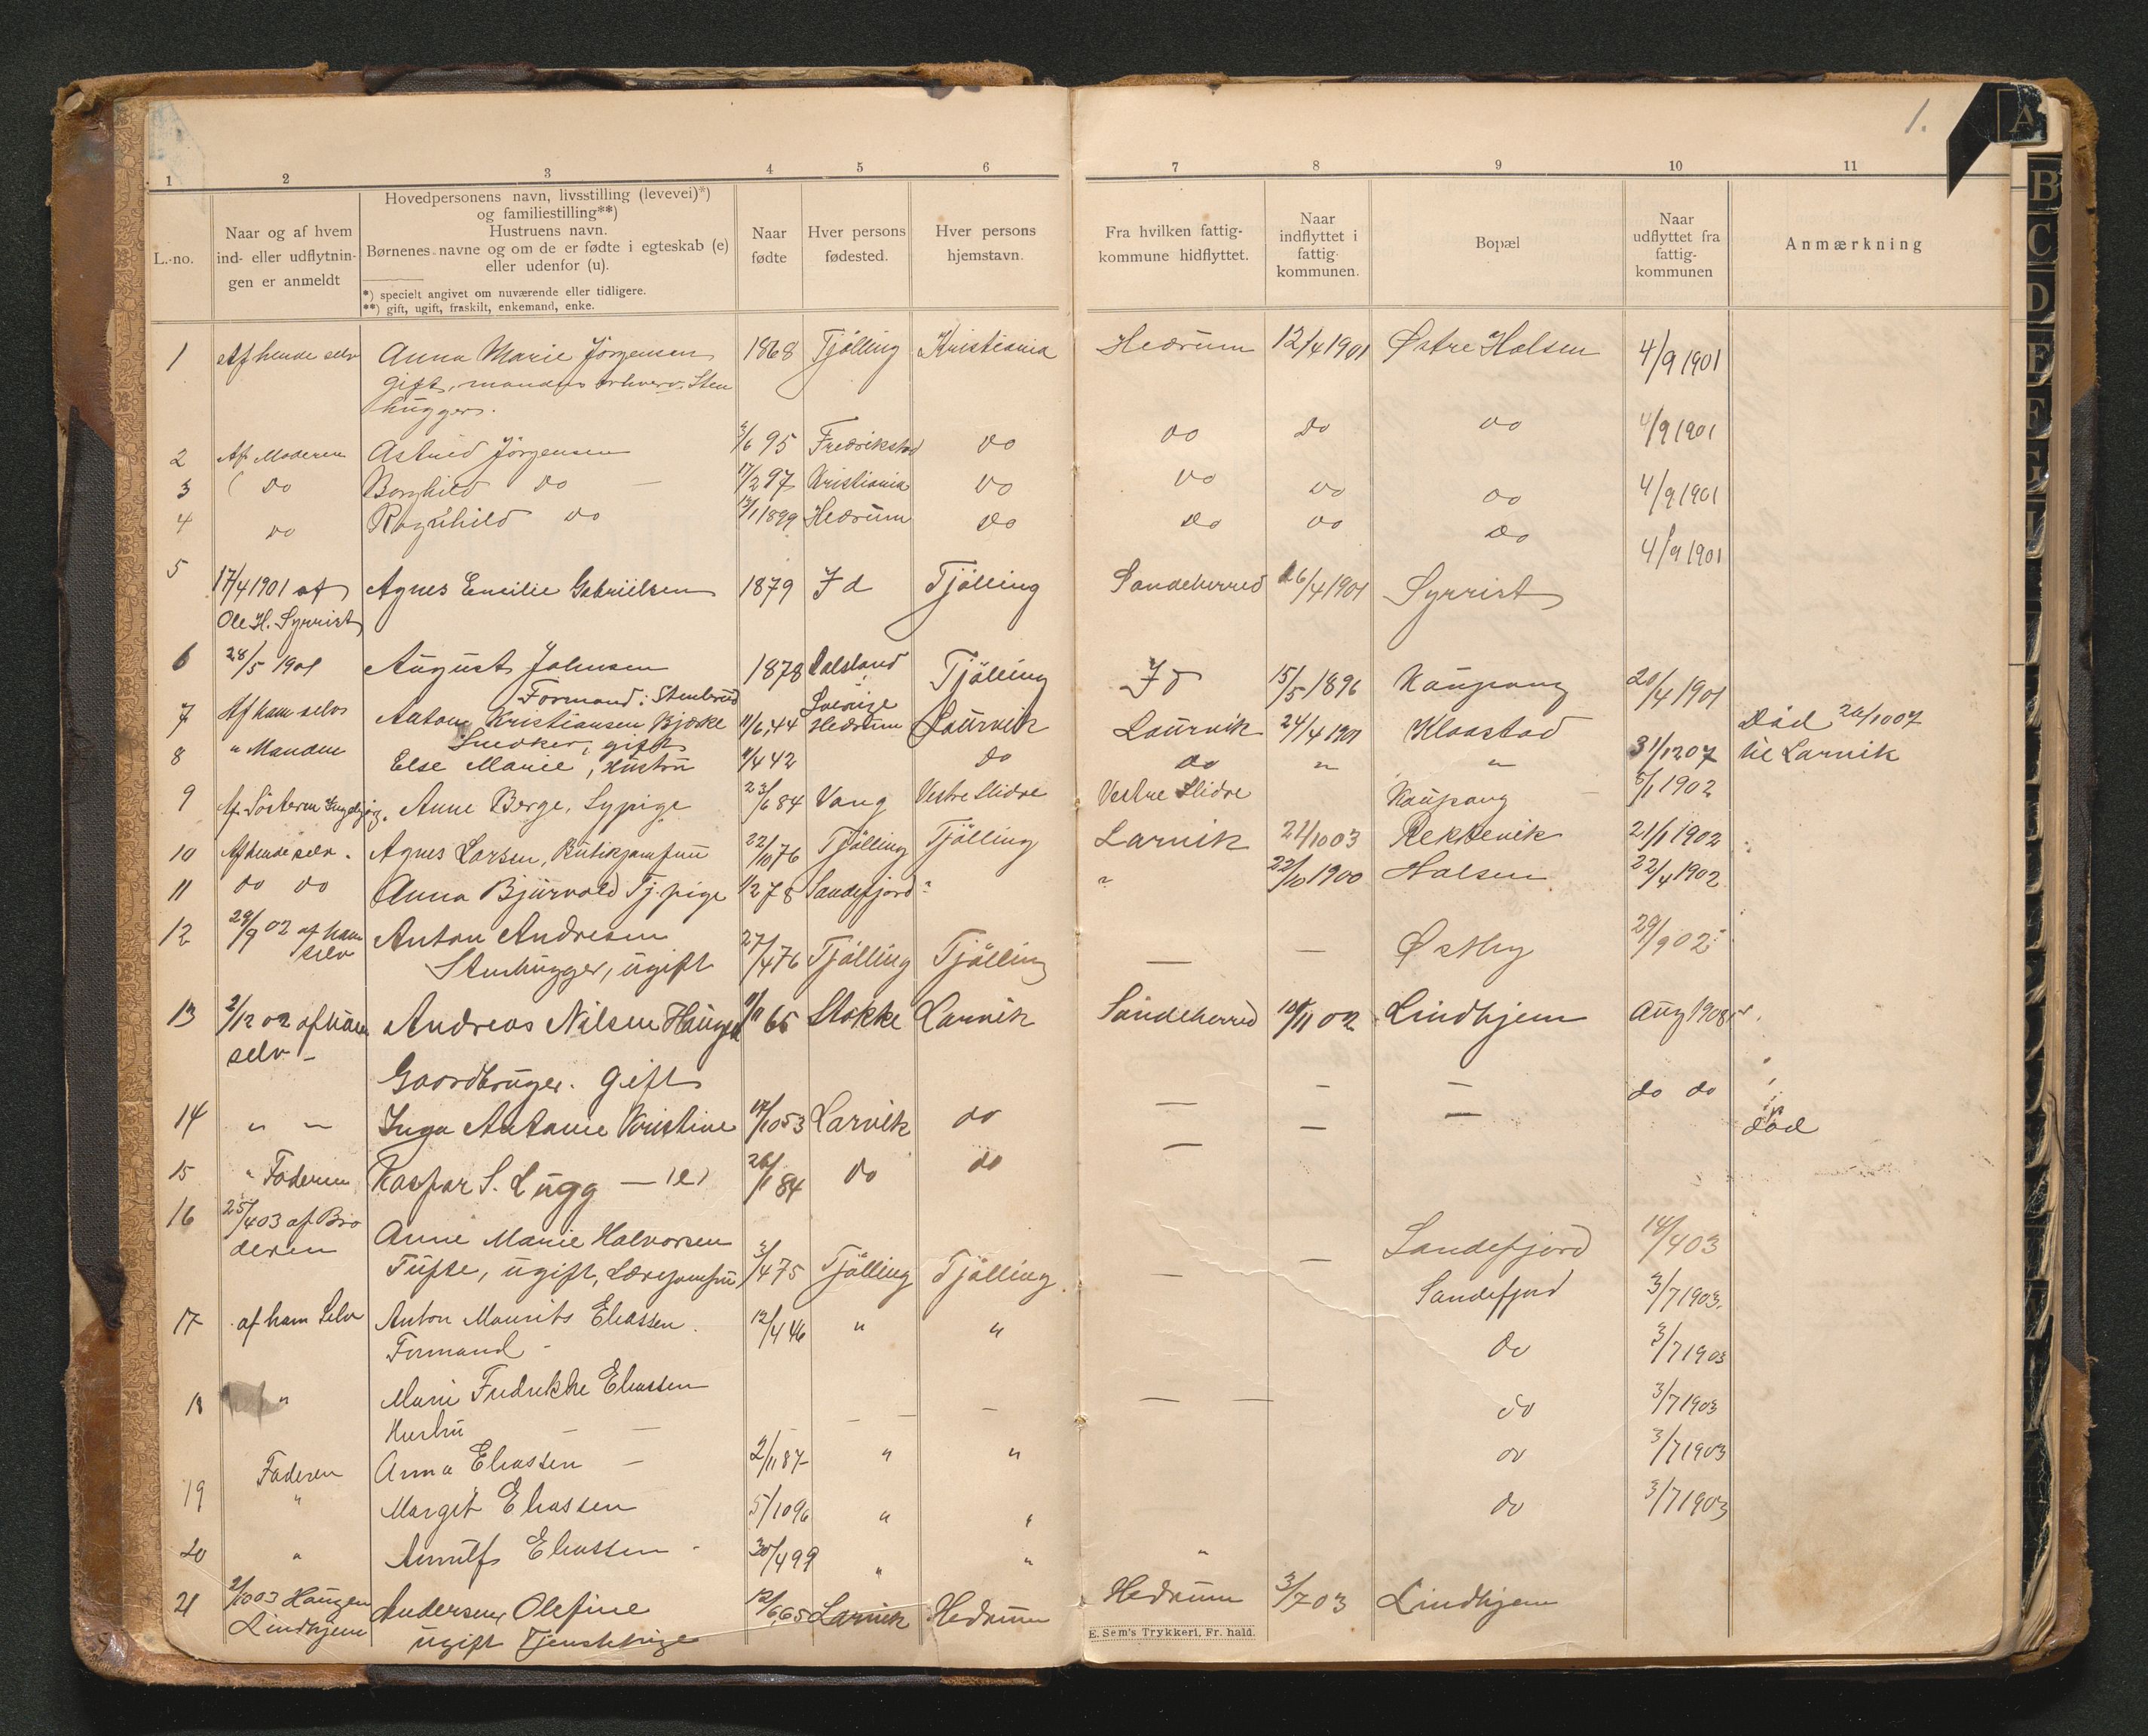 1.
A
B
C
D
E
F
G
1 2 3 4 5 6 7 8 9 10 11
L.-no.
Naar og af hvem
ind- eller udflytnin-
gen er anmeldt
Hovedpersonens navn, livsstilling (levevei)*)
og familiestilling**)
Hustruens navn.
Børnenes navne og om de er fødte i egteskab (e)
eller udenfor (u).
*) specielt angivet om nuværende eller tidligere.
**) gift, ugift, fraskilt, enkemand, enke.
Naar
fødte
Hver persons
fødested.
Hver persons
hjemstavn.
Fra hvilken fattig-
kommune hidflyttet.
Naar
indflyttet i
fattig-
kommunen.
Bopæl
Naar
udflyttet fra
fattig-
kommunen
Anmærkning
1 Af hende selv Anna Marie Jörgensen 1868 Tjölling Kristiania Hedrum 12/4 1901 Østre Halsen 4/9 1901
gift, mandens erhverv: Sten
hugger.
2 Af Moderen Astrid Jörgensen 3/6 95 Fredrikstad do do do do 4/9 1901
3 do Borghild do 17/2 97 Kristiania do do do do 4/9 1901
4 do Ragnhild do 12/1 1899 Hedrum do do do do 4/9 1901
5 17/4 1901 af Agnes Emilie Gabrielsen 1879 Id Tjölling Sandeherred 16/4 1901 Syrrist
Ole H. Syrrist
6 28/5 1901 August Johnsen 1878 Dalsland Tjölling Id 15/5 1896 Kaupang 20/4 1901
Formand: Stenbrud Sverige
7 Af ham selv Anton Kristiansen Bjerke 11/6, 44 Hedrum Laurvik Laurvik 24/4 1901 Klaastad Död 20/10 07
Snedker, gift
8 " Manden Else Marie, Hustru 4/4 42 do do " " 31/12 07 til Larvik
9 Af Sösteren Ingebjørg. Anne Berge, Sypige 23/6 84 Vang Vestre Slidre Vestre Slidre Kaupang 5/1 1902
10 Af hende selv. Agnes Larsen, Butikjomfru 22/10 76 Tjölling Tjölling Larvik 21/10 03 Rekkevik 21/1 1902
11 do do Anna Bjurvald Tj. pige 1/2 78 Sandefjord ? ? 22/10 1900 Halsen 22/4 1902
12 29/9 02 af ham Anton Andresen 27/4 76 Tjölling Tjölling — — Østby 29/9 02
selv Stenhugger, ugift
13 2/12 02 af ham Andreas Nilsen Haugen 11/11 65 Stokke Larvik Sandeherred 10/11 02 Lindhjem Aug 1908
selv -
Gaardbruger. gift
14 " " Inga Antonie Kristine 17/10 53 Larvik do — — — do do
död
15 " Faderen Kaspar S. Lugg — (e) 26/1 84 do do — — —
16 25/4 03 af Bro Anne Marie Halvorsen
deren Tufte, ugift, Lærejomfru 3/4 75 Tjölling Tjölling — — Sandefjord 14/4 03
17 af ham Selv Anton Maurits Eliassen 12/4 46 " " Sandefjord 3/7 1903.
Formand - do 3/7 1903
18 " Marie Fredrikke Eliassen — — — — — do 3/7 1903
Hustru
Faderen Anna Eliassen - 2/11 87 " " do 3/7 1903
19 " Margit Eliassen 5/10 96 " " do 3/7 1903
20 " Arnulf Eliassen - 30/4 99 " " "
21 2/10 03 Haugen Andersen, Olefine 12/6, 65 Larvik Hedrum Hedrum 3/7 03 Lindhjem
Lindhjem ugift Tjenstepige
E. Sem's Trykkeri, Fr. hald.